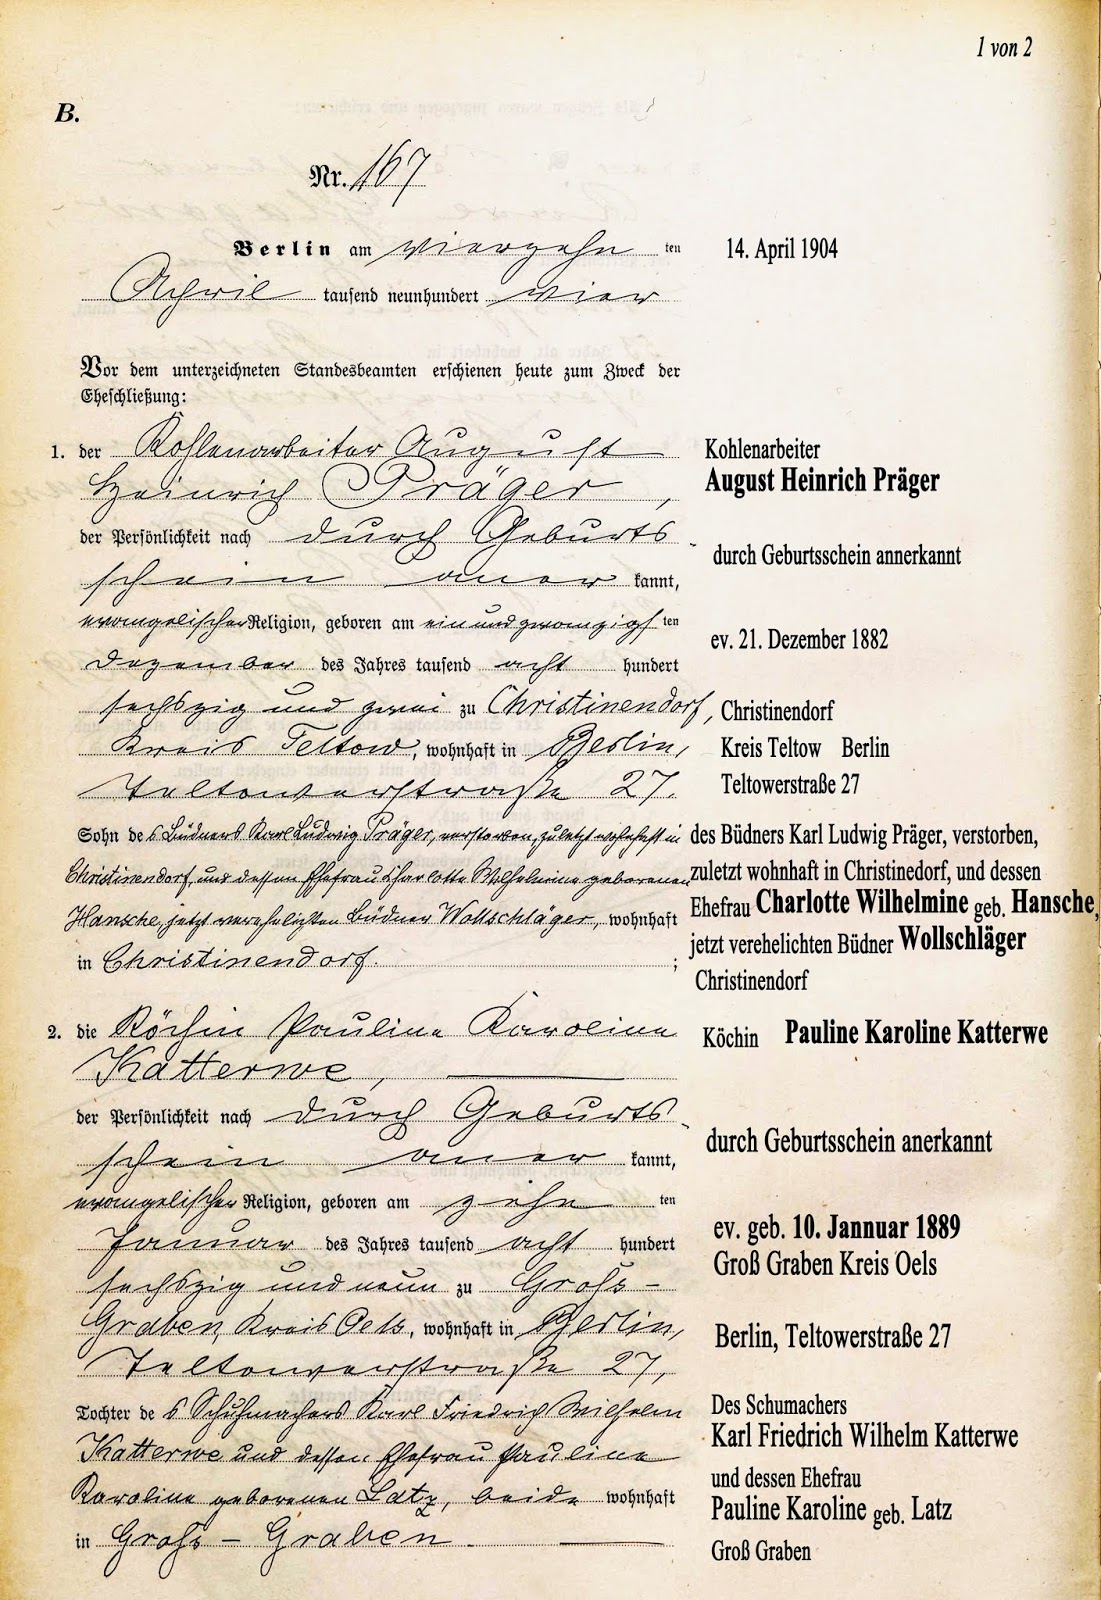 1 von 2
B.
Nr. 167
Berlin am vierzehn ten
14. April 1904
April tausend neunhundert vier
Vor dem unterzeichneten Standesbeamten erschienen heute zum Zweck der
Eheschließung:
1. der Kohlenarbeiter August
Kohlenarbeiter
Heinrich Präger,
August Heinrich Präger
der Persönlichkeit nach durch Geburts-
durch Geburtsschein annerkannt
schein aner kannt,
evangelischer Religion, geboren am einundzwanzigs ten
ev. 21. Dezember 1882
Dezember des Jahres tausend acht hundert
sechszig und zwei zu Christinendorf,
Christinendorf
Kreis Teltow, wohnhaft in Berlin,
Kreis Teltow Berlin
Teltowerstraße 27.
Teltowerstraße 27
Sohn des Büdners Karl Ludwig Präger, verstorben, zuletzt wohnhaft in
des Büdners Karl Ludwig Präger, verstorben,
Christinendorf, und dessen Ehefrau Charlotte Wilhelmine geborenen
zuletzt wohnhaft in Christinedorf, und dessen
Ehefrau Charlotte Wilhelmine geb. Hansche,
Hansche, jetzt verehelichten Büdner Wollschläger, wohnhaft
jetzt verehelichten Büdner Wollschläger
in Christinendorf. ;
Christinendorf
2. die Köchin Pauline Karoline
Köchin Pauline Karoline Katterwe
Katterwe,
der Persönlichkeit nach durch Geburts-
durch Geburtsschein anerkannt
schein aner kannt,
evangelischer Religion, geboren am zehn ten
ev. geb. 10. Jannuar 1889
Januar des Jahres tausend acht hundert
Groß Graben Kreis Oels
sechszig und neun zu Groß-
Graben, Kreis Oels, wohnhaft in Berlin,
Berlin, Teltowerstraße 27
Teltowerstraße 27,
Tochter des Schuhmachers Karl Friedrich Wilhelm
Des Schumachers
Karl Friedrich Wilhelm Katterwe
Katterwe und dessen Ehefrau Pauline
und dessen Ehefrau
Karoline geborenen Latz, beide wohnhaft
Pauline Karoline geb. Latz
in Groß-Graben.
Groß Graben